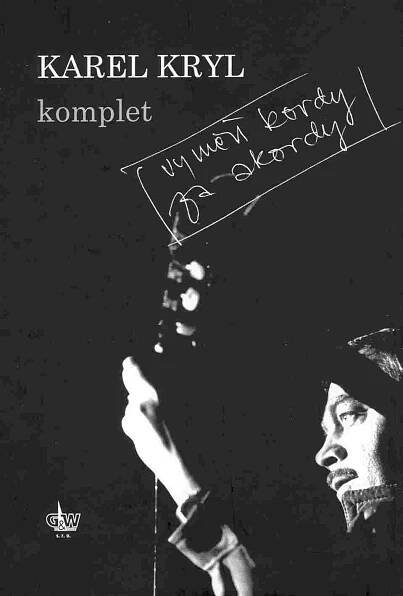 KAREL KRYL
komplet
vymění kordy
za akordy
G&W
s. r. o.